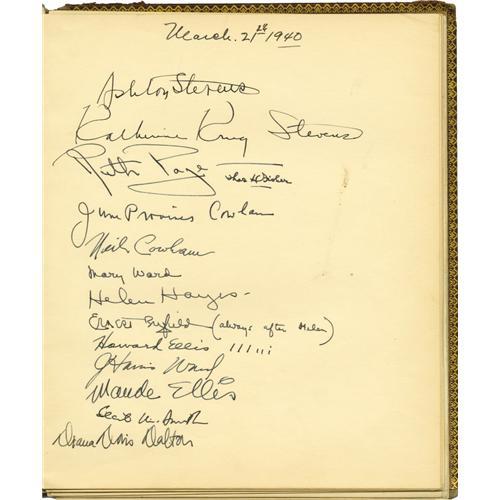 March. 21st 1940
Ashton Stevens
Katherine Krug Stevens
Ruth Page Thos H Fisher
June Provines Cowham
Neils Cowham
Mary Ward
Helen Hayes
Ernest Enfield (always after Helen)
Howard Ellis
J Harris Ward
Maude Ellis
Smith
Diana Dalton